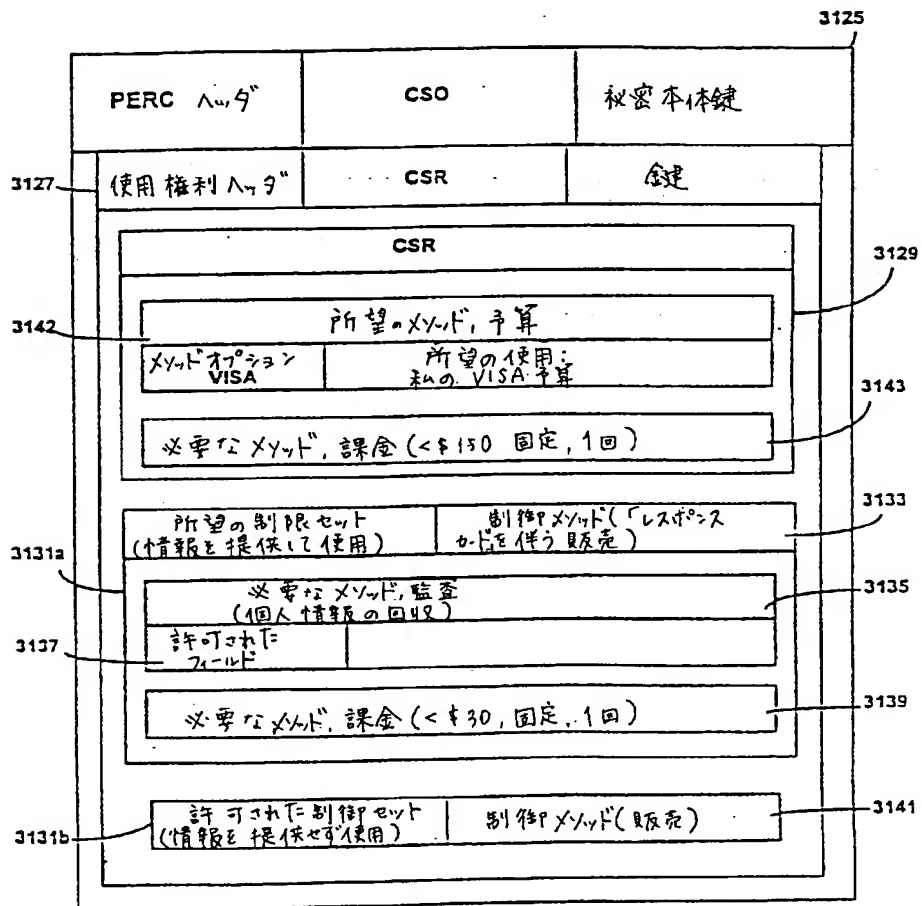 3125
PERC ヘッダ
CSO
秘密本体鍵
3127
使用権利ヘッダ
CSR
鍵
CSR
3129
3142
所望のメソッド, 予算
メソッドオプション
VISA
所望の使用:
私の VISA 予算
3143
必要なメソッド, 課金 (<$150 固定, 1回)
3131a
所望の制限セット
(情報を提供して使用)
制御メソッド(「レスポンス
カード」を伴う販売)
3133
必要なメソッド, 監査
(個人情報の回収)
3135
3137
許可された
フィールド
必要なメソッド, 課金 (<$30, 固定, 1回)
3139
3131b
許可された制御セット
(情報を提供せず使用)
制御メソッド(販売)
3141